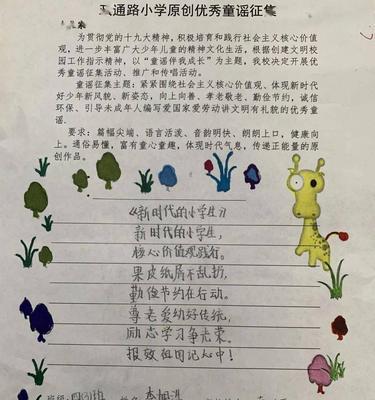 通路小学原创优秀童谣征集
为贯彻党的十九大精神，积极培育和践行社会主义核心价值
观，进一步丰富广大少年儿童的精神文化生活，根据创建文明校
园工作指示精神，以“童谣伴我成长”为主题，我校决定开展优
秀童谣征集活动、推广和传唱活动。
童谣征集主题：紧紧围绕社会主义核心价值观、体现新时代
好少年新风貌、新姿态，向上向善、孝老敬老、勤俭节约，诚信
环保、引导未成年人编写爱国家爱劳动讲文明有礼貌的优秀童
谣。
要求：篇幅尖端、语言活泼、音韵明快、朗朗上口，健康向
上。通俗易懂，富有童心童趣，体现时代气息，传递正能量的原
创作品。
《新时代的小学生》
新时代的小学生，
核心价值观践行。
果皮纸屑不乱扔，
勤俭节约在行动。
尊老爱幼好传统，
励志学习争光荣。
报效祖国记心中！
班级：四（3）班